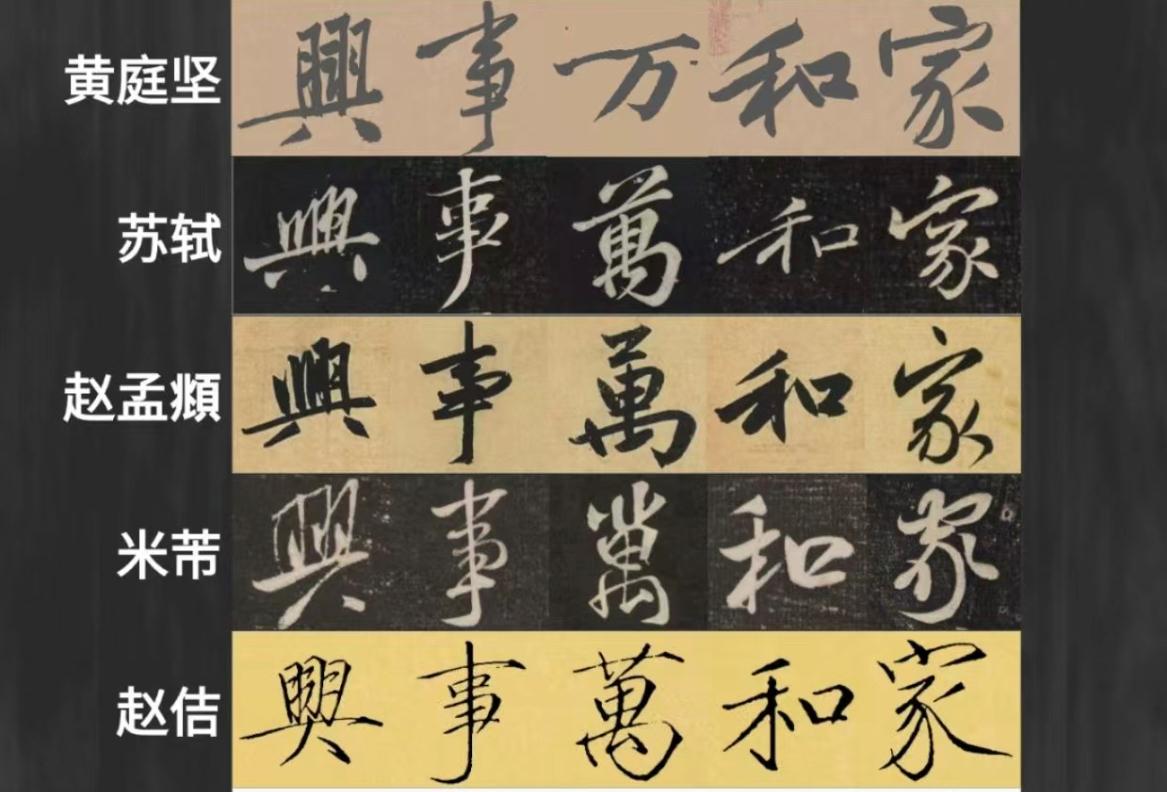 黄庭坚
家和万事興
苏轼
家和萬事興
赵孟頫
家和萬事興
米芾
家和萬事興
赵佶
家和萬事興